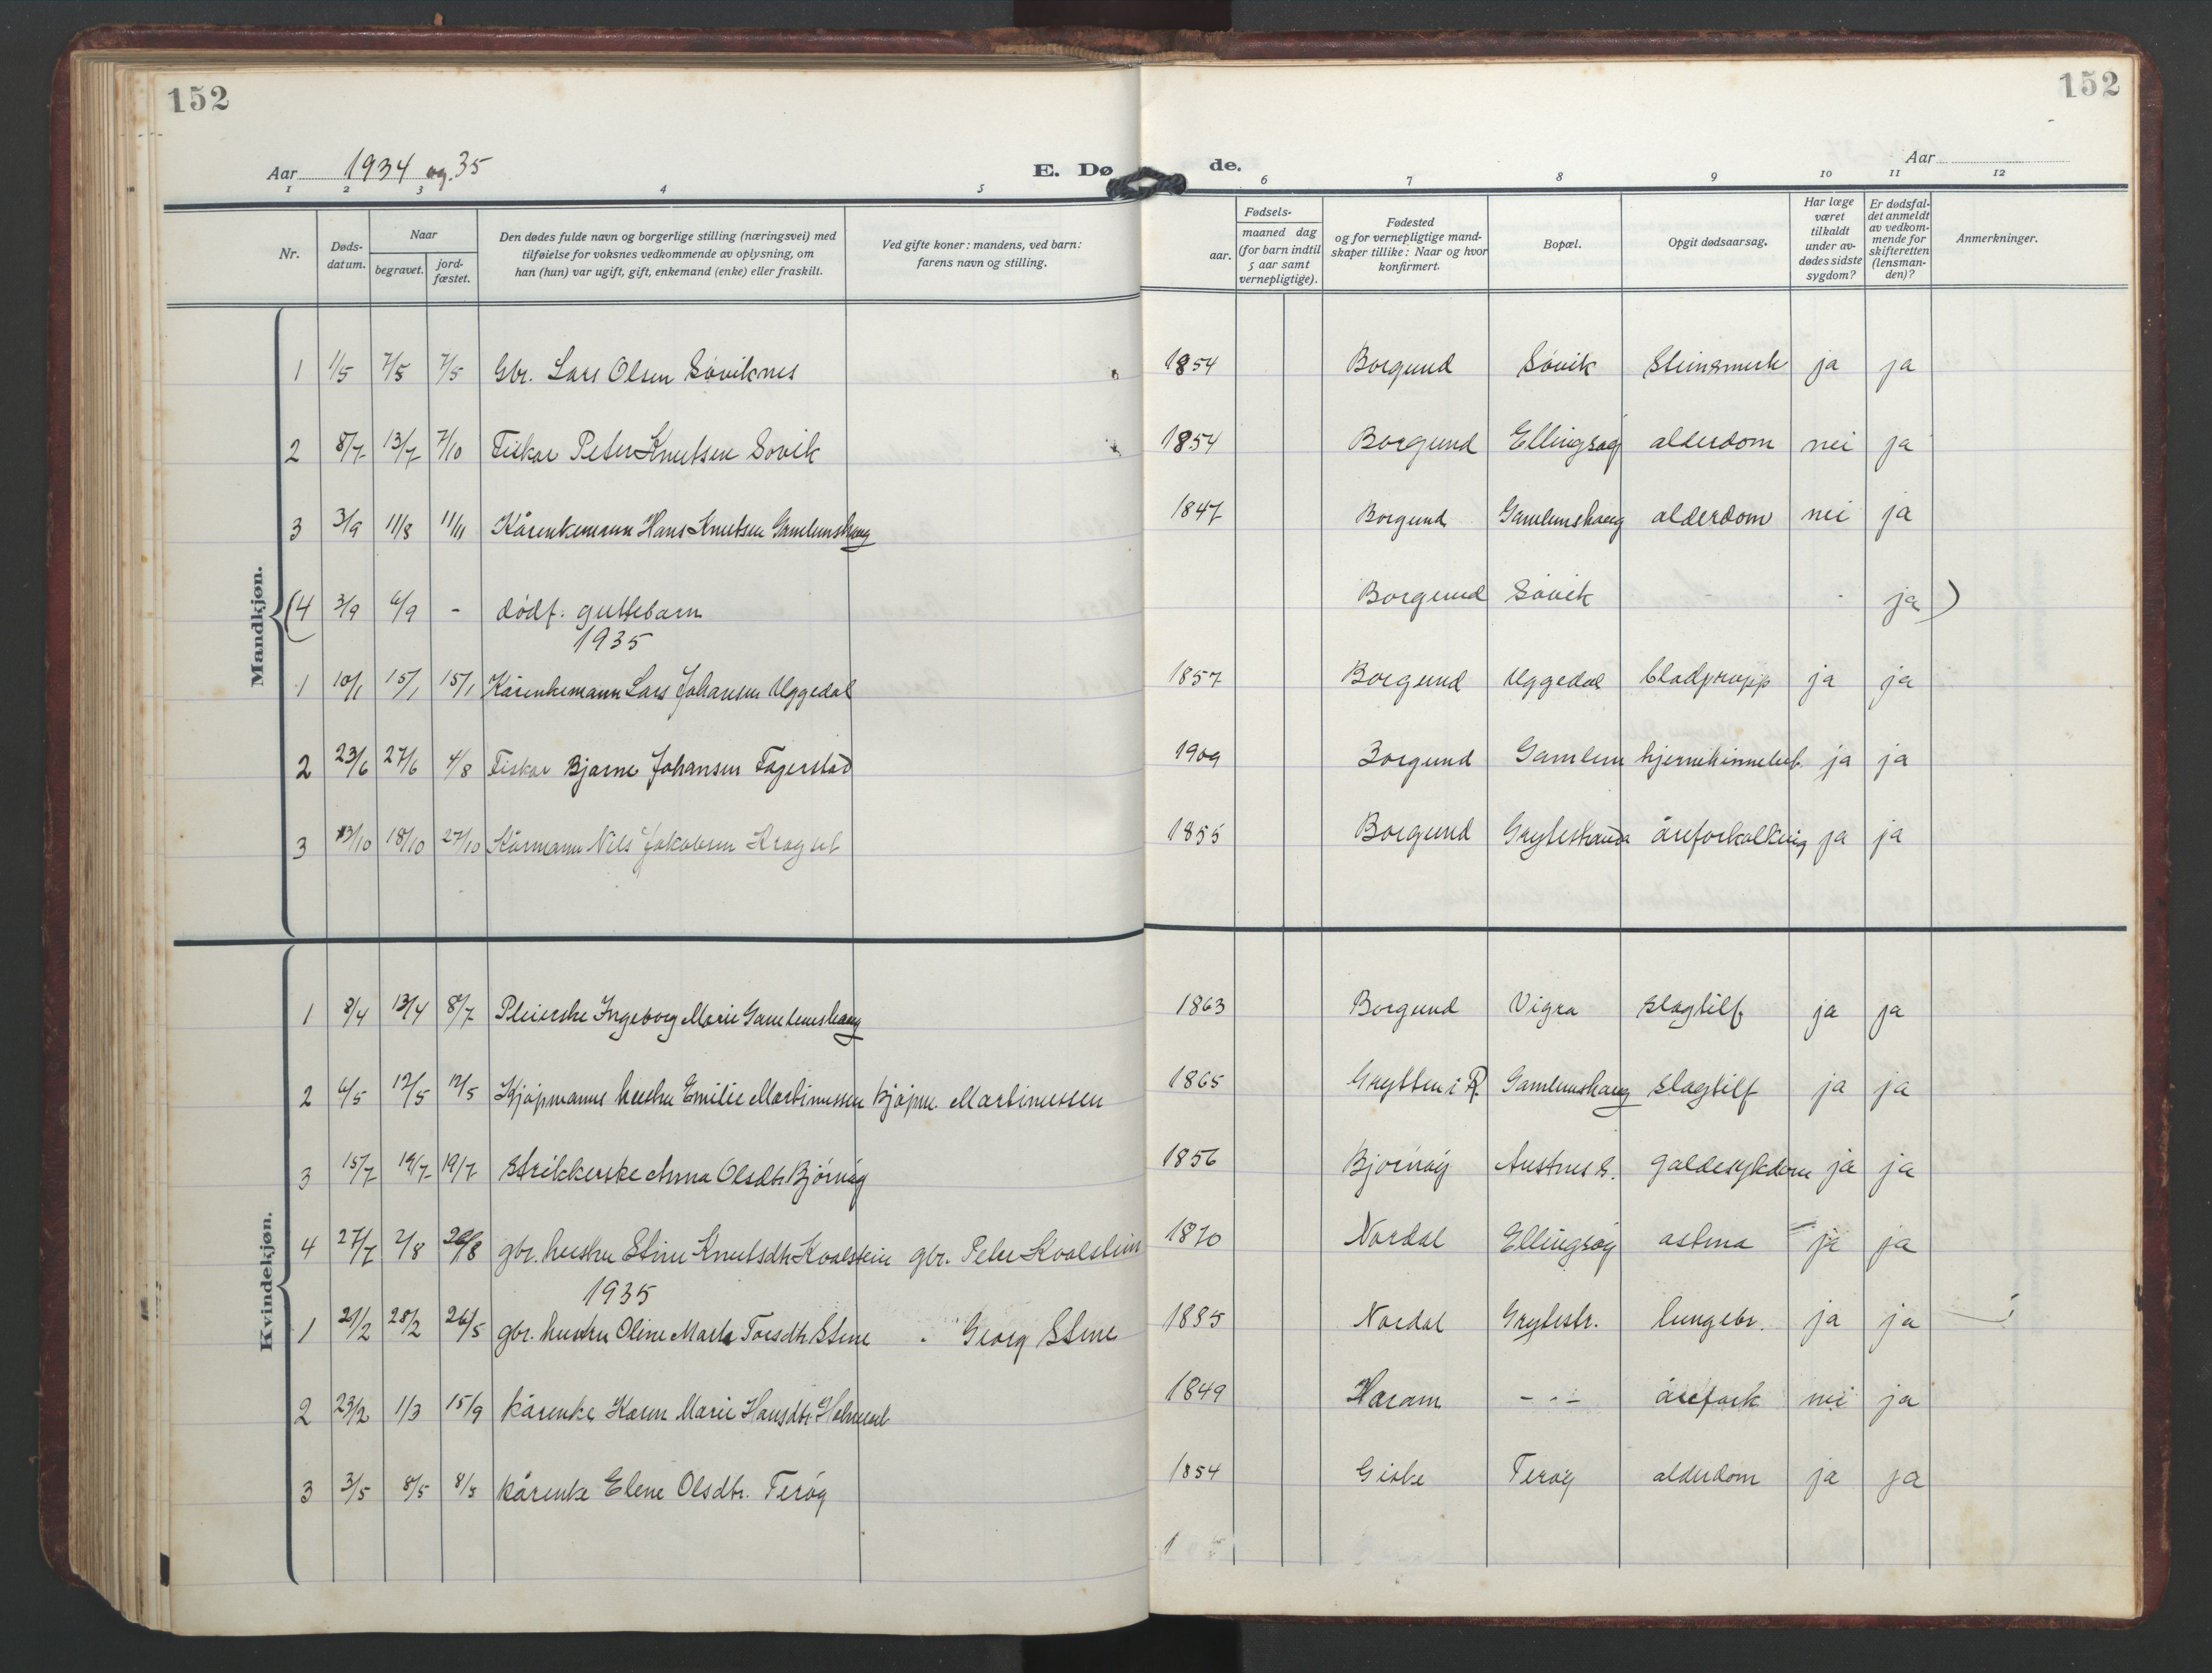 152
152
Aar 1934 og 35
E. Dø
de.
Aar
1 2 3 4 5 6 7 8 9 10 11 12
Nr.
Døds-
datum.
Naar
begravet.
jord-
fæstet.
Den dødes fulde navn og borgerlige stilling (næringsvei) med
tilføielse for voksnes vedkommende av oplysning, om
han (hun) var ugift, gift, enkemand (enke) eller fraskilt.
Ved gifte koner: mandens, ved barn:
farens navn og stilling.
Fødsels-
aar.
maaned dag
(for barn indtil
5 aar samt
vernepligtige).
Fødested
og for vernepligtige mand-
skaper tillike: Naar og hvor
konfirmert.
Bopæl.
Opgit dødsaarsag.
Har læge
været
tilkaldt
under av-
dødes sidste
sygdom?
Er dødsfal-
det anmeldt
av vedkom-
mende for
skifteretten
(lensman-
den)?
Anmerkninger.
Mandkjøn.
1 1/5 7/5 7/5 Gbr. Lars Olsen Søviknes 1854 Borgund Søvik ja ja
2 8/7 13/7 7/10 Fiskar Peter Knutsen Søvik 1854 Borgund Ellingsøy alderdom nei ja
3 3/9 11/8 11/11 Kårenkemann Hans Knutsen Gamlemshaug 1847 Borgund Gamlemshaug alderdom nei ja
(4 3/9 6/9 - dødf. guttebarn Borgund Søvik - - ja )
1935
1 10/1 15/1 15/1 Kårenkemann Lars Johansen Uggedal 1857 Borgund Uggedal blodpropp ja ja
2 23/6 27/6 4/8 Fiskar Bjarne Johansen Fagerstad 1909 Borgund Gamlem ja ja
3 13/10 18/10 27/10 Kårmann Nils Jakobsen 1855 Borgund Grytestranda åreforkalkning ja ja
Kvindekjøn.
1 8/4 13/4 8/7 Pleierske Ingeborg Marie Gamlemshaug 1863 Borgund Vigra slagtilf ja ja
2 6/5 12/5 12/5 Kjøpmanns hustru Emilie Martinussen kjøpm. Martinussen 1865 Grytten i R. Gamlemshaug slagtilf ja ja
3 15/7 19/7 19/7 Strikkerske Anna Olsdtr. Bjørnøy 1856 Bjørnøy Austnes galdesykdom ja ja
4 27/7 2/8 26/8 gbr. hustru Stine Knutsdtr Kvalstein gbr. Peter Kvalstein 1870 Nordal Ellingsøy astma ja ja
1935
1 21/2 28/2 26/5 gbr. hustru Oline Marta Torsdtr. Stene " Georg Stene 1885 Nordal Grytestr. lungebr. ja ja
2 23/2 1/3 15/9 kårenke Karen Marie Hansdtr. 1849 Haram - " - årefork nei ja
3 3/5 8/5 8/5 kårenke Elene Olsdtr. Terøy 1854 Giske Terøy alderdom ja ja